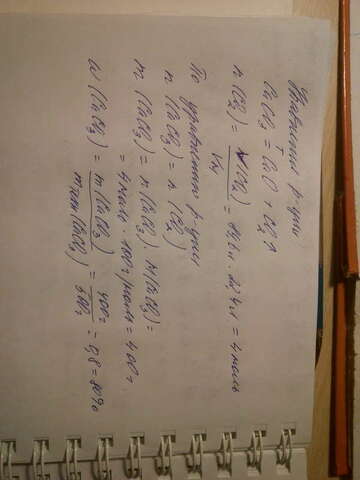 Уравнение р-ции
CaCO₃ = CaO + CO₂↑
n (CO₂) = V(CO₂) / Vм = 89,6 л · 22,4 л = 4 моль
По уравнению р-ции
n (CaCO₃) = n (CO₂)
m (CaCO₃) = n (CaCO₃) · M (CaCO₃) =
= 4 моль · 100 г/моль = 400 г
w (CaCO₃) = m (CaCO₃) / m (CaCO₃) = 400 г / 500 г = 0,8 = 80%